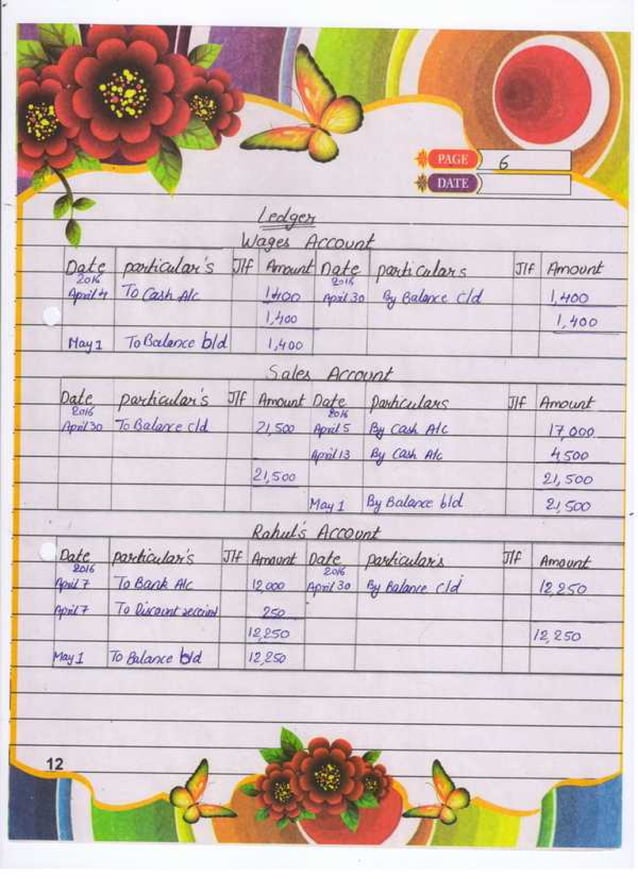 PAGE 6
DATE
Ledger
Wages Account
Date particular's J/f Amount Date particulars J/f Amount
2016 2016
April 4 To Cash A/c 1400 April 30 By Balance c/d 1,400
1,400 1,400
May 1 To Balance b/d 1,400
Sales Account
Date particular's J/f Amount Date particulars J/f Amount
2016 2016
April 30 To Balance c/d 21,500 April 5 By Cash A/c 17,000
April 13 By Cash A/c 4,500
21,500 21,500
May 1 By Balance b/d 21,500
Rahul's Account
Date particular's J/f Amount Date particular's J/f Amount
2016 2016
April 7 To Bank A/c 12,000 April 30 By Balance c/d 12,250
April 7 To Discount received 250
12,250 12,250
May 1 To Balance b/d 12,250
12